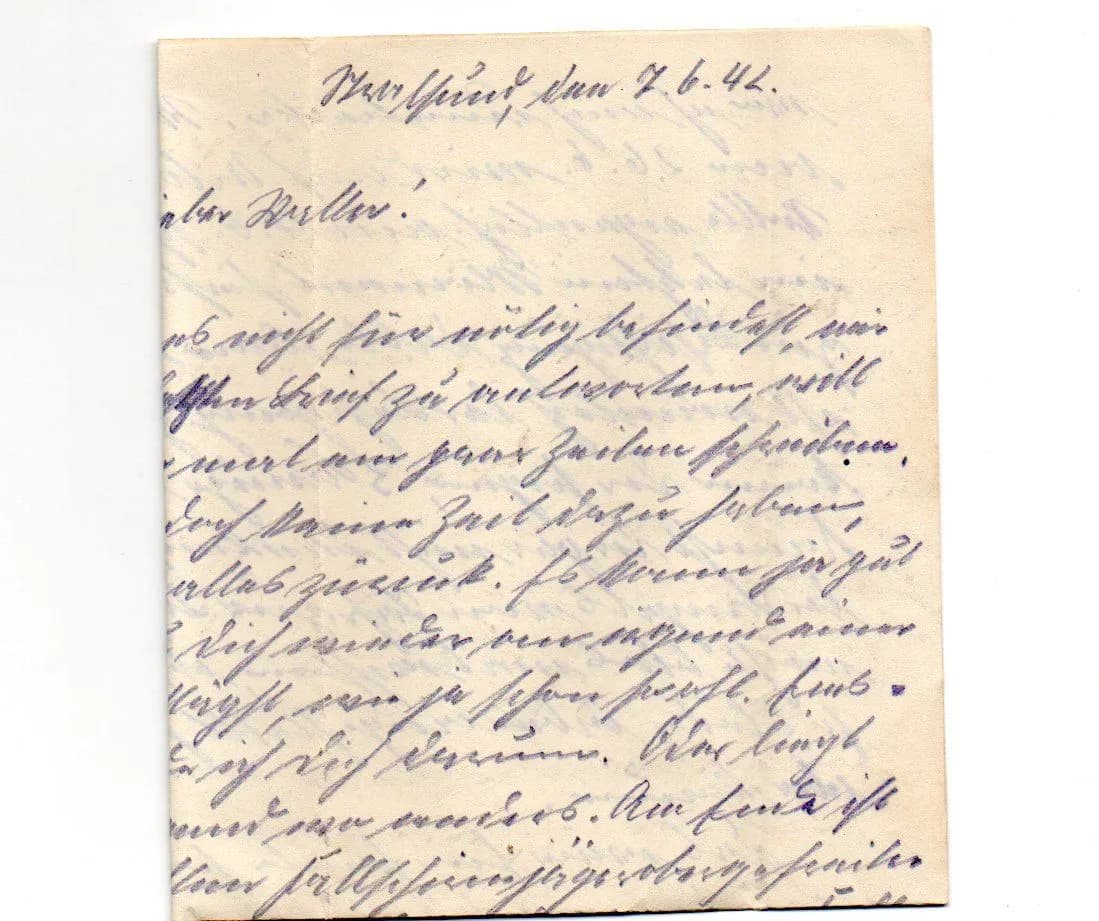 Stralsund, den 7.6.42.
ieber Walter!
es nicht für nötig befindest, mir
letzten Brief zu antworten, will
mal ein paar Zeilen schreiben.
doch keine Zeit dazu haben,
alles zurück. Es kann ja gut
Dich wieder an irgend einer
schlägst, wie ja schon so oft. Eins-
ich Dich darum. Oder liegt
wo anders. Am Ende ist
Fallschirmjägerobergefreiter